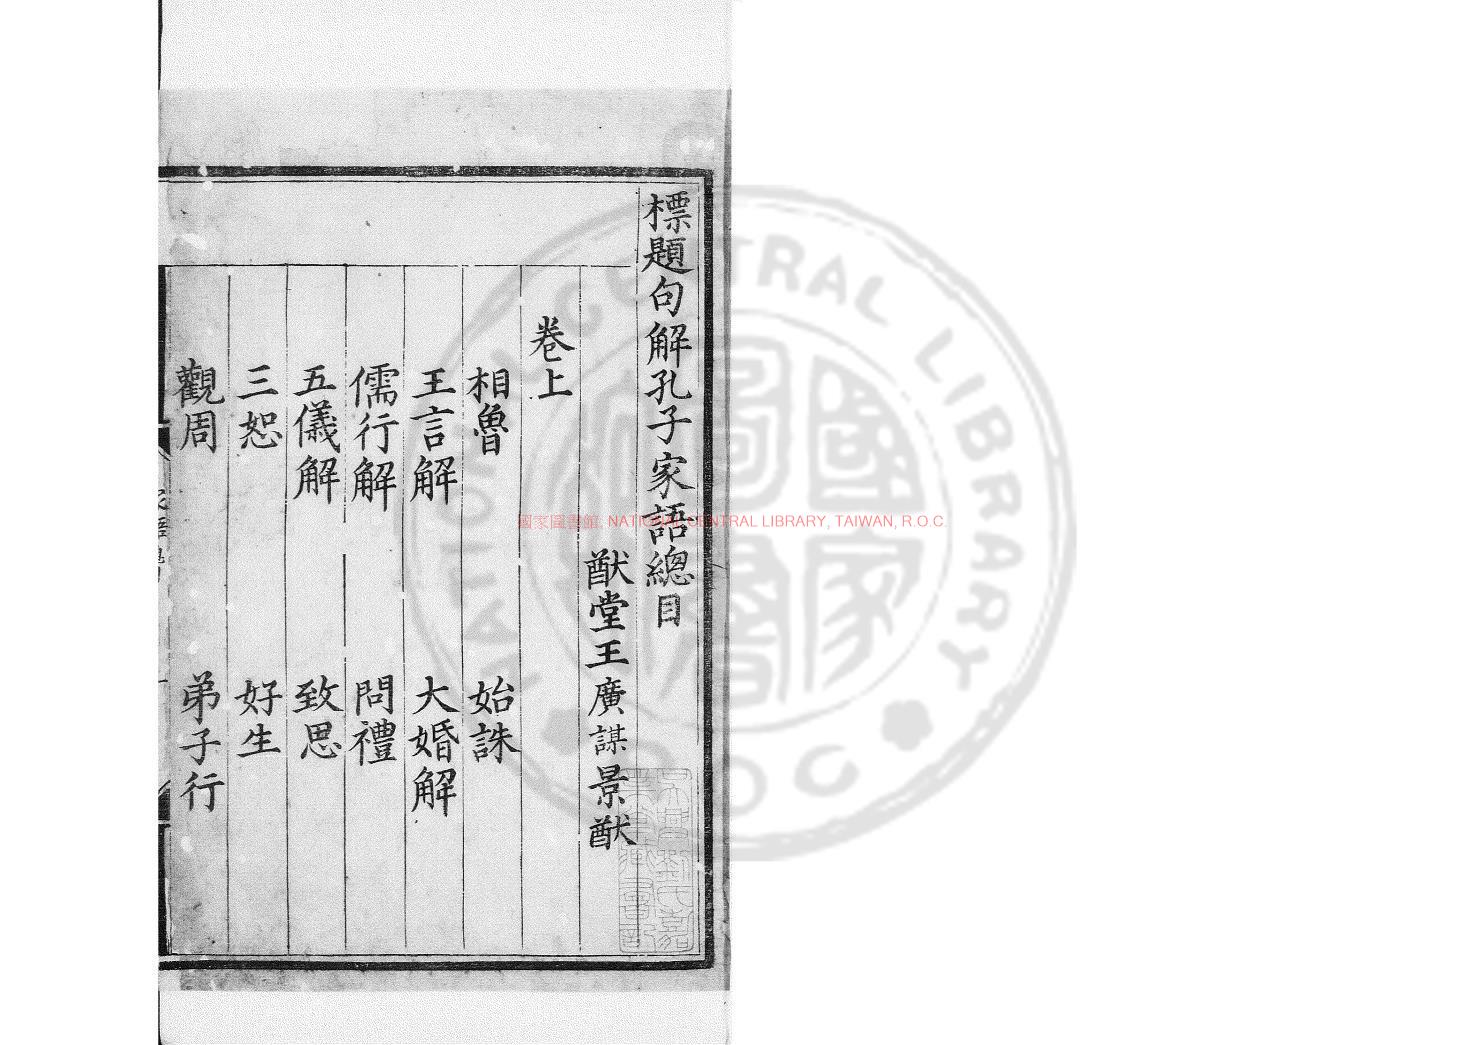 標題句解孔子家語總目
猷堂王廣謀景猷
卷上
相魯 始誅
王言解 大婚解
儒行解 問禮
五儀解 致思
三恕 好生
觀周 弟子行
國家圖書館, NATIONAL CENTRAL LIBRARY, TAIWAN, R.O.C.
NATIONAL CENTRAL LIBRARY
R O C
國家圖書